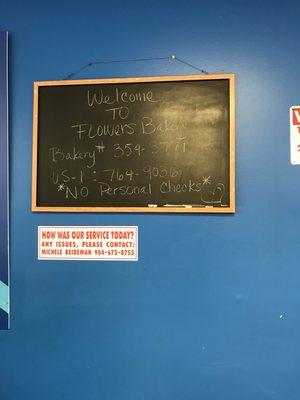 Welcome
TO
Flowers Bakery
Bakery# 354-3771
US-1: 764-9036
*No Personal Checks*
HOW WAS OUR SERVICE TODAY?
ANY ISSUES, PLEASE CONTACT:
MICHELE BEIDEMAN 904-673-8755